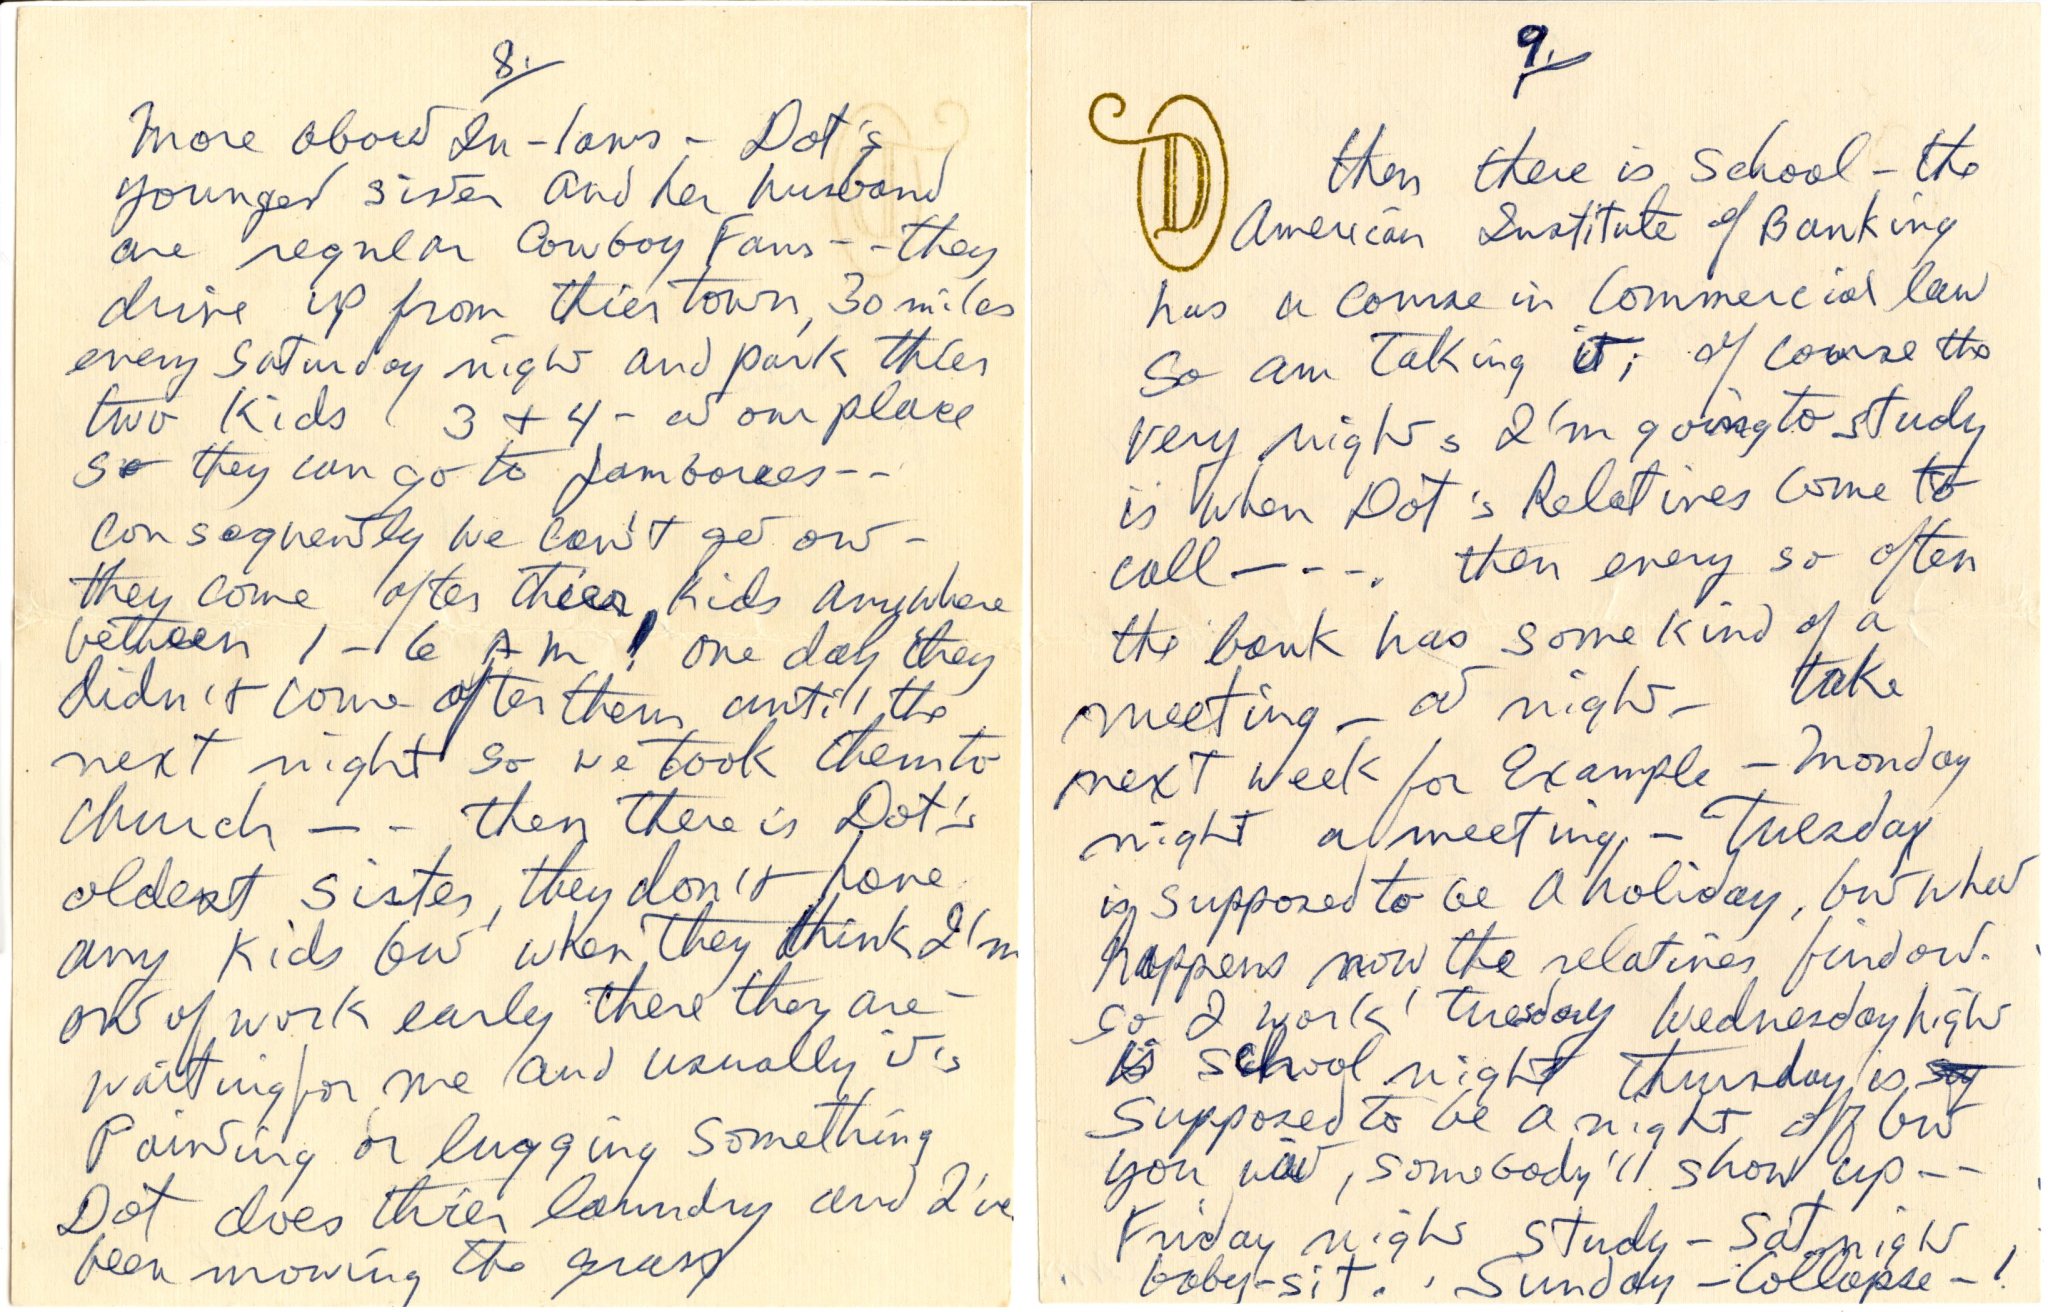 8.
More about In-laws - Dot's
younger sister and her husband
are regular Cowboy Fans - - they
drive up from thier town, 30 miles
every Saturday night and park thier
two kids 3 + 4 - at our place
so they can go to jamborees - -
consequently we can't get out -
they come after thier kids anywhere
between 1 - 6 AM! one day they
didn't come after them until the
next night so we took them to
church - - then there is Dot's
oldest sister, they don't have
any kids but when they think I'm
out of work early there they are -
waiting for me and usually it's
Painting or lugging something
Dot does thier laundry and I've
been mowing the grass
9.
D
then there is school - the
American Institute of Banking
has a course in Commercial law
so am taking it; of course the
very nights I'm going to study
is when Dot's Relatives come to
call - - - -. then every so often
the bank has some kind of a
meeting - at night - take
next week for Example - Monday
night a meeting, - Tuesday
is supposed to be a holiday, but what
happens now the relatives find out.
so I work Tuesday Wednesday night
is school night Thursday is
supposed to be a night off but
you wait, somebody'll show up - -
Friday night study - Sat night
baby-sit. Sunday - Collapse - !